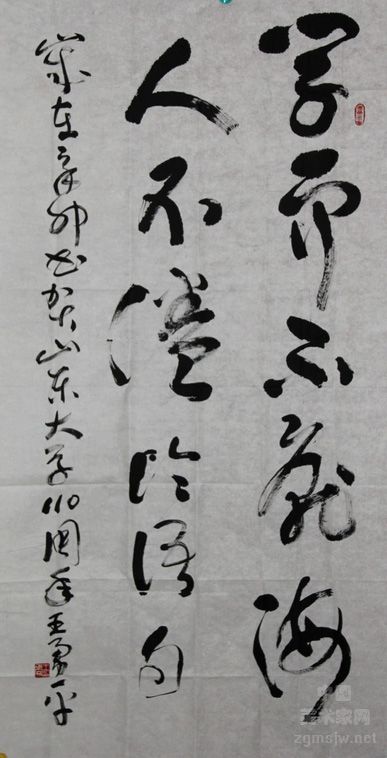 学而不厭诲
人不倦论语句
歲在辛卯书贺山东大学110周年王勇平
中国
美术家网
zgmsjw.net